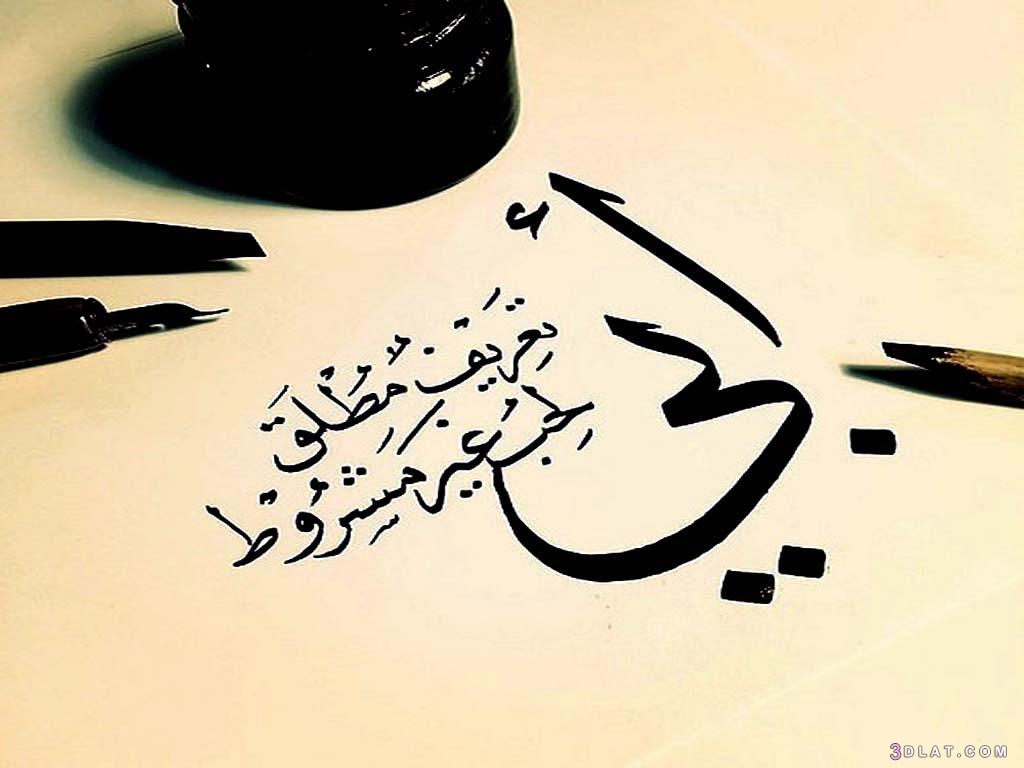 أبي
تَعْرِيفٌ مُطْلَقٌ
لِحُبٍّ غَيْرِ مَشْرُوطٍ
3DLAT.COM